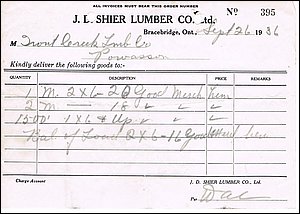 ALL INVOICES MUST BEAR THIS ORDER NUMBER
J. L. SHIER LUMBER CO. Ltd. No 395
Bracebridge, Ont., Sept 26 1936
M Trout Creek Lmb Co
Powassan
Kindly deliver the following goods to:-
QUANTITY DESCRIPTION PRICE
1 M 2 x 6 - 20 Good Merch hem
2 M — 18 " " "
1500' 1 x 6 & Up " " "
Bal of Load 2 x 6 - 16 Good Merch hem
Charge Account
J. D. SHIER LUMBER CO., Ltd.
Per